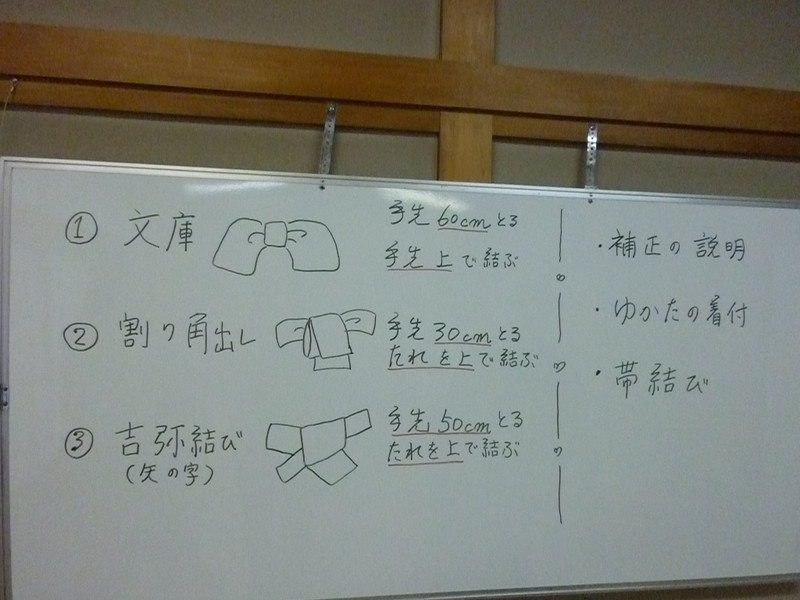 ① 文庫
手先60cmとる
手先上で結ぶ
② 割り角出し
手先30cmとる
たれを上で結ぶ
③ 吉弥結び
(矢の字)
手先50cmとる
たれを上で結ぶ
・補正の説明
・ゆかたの着付
・帯結び